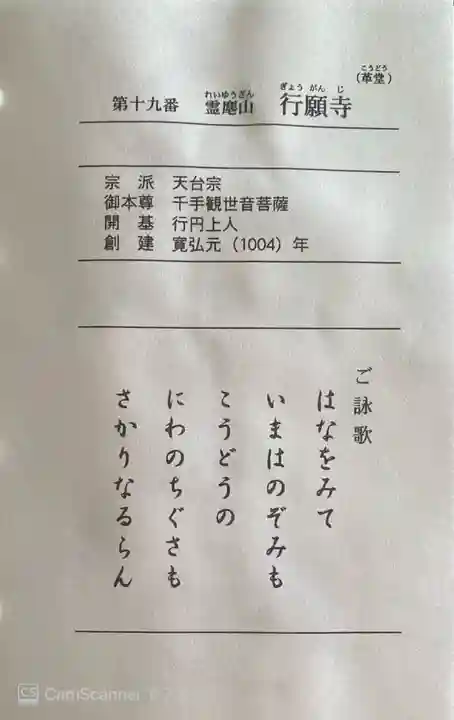 第十九番 霊麀山 行願寺 (革堂)
れいゆうざん ぎょうがんじ こうどう
宗派 天台宗
御本尊 千手観世音菩薩
開基 行円上人
創建 寛弘元(1004)年
ご詠歌
はなをみて
いまはのぞみも
こうどうの
にわのちぐさも
さかりなるらん
CS CamScanner